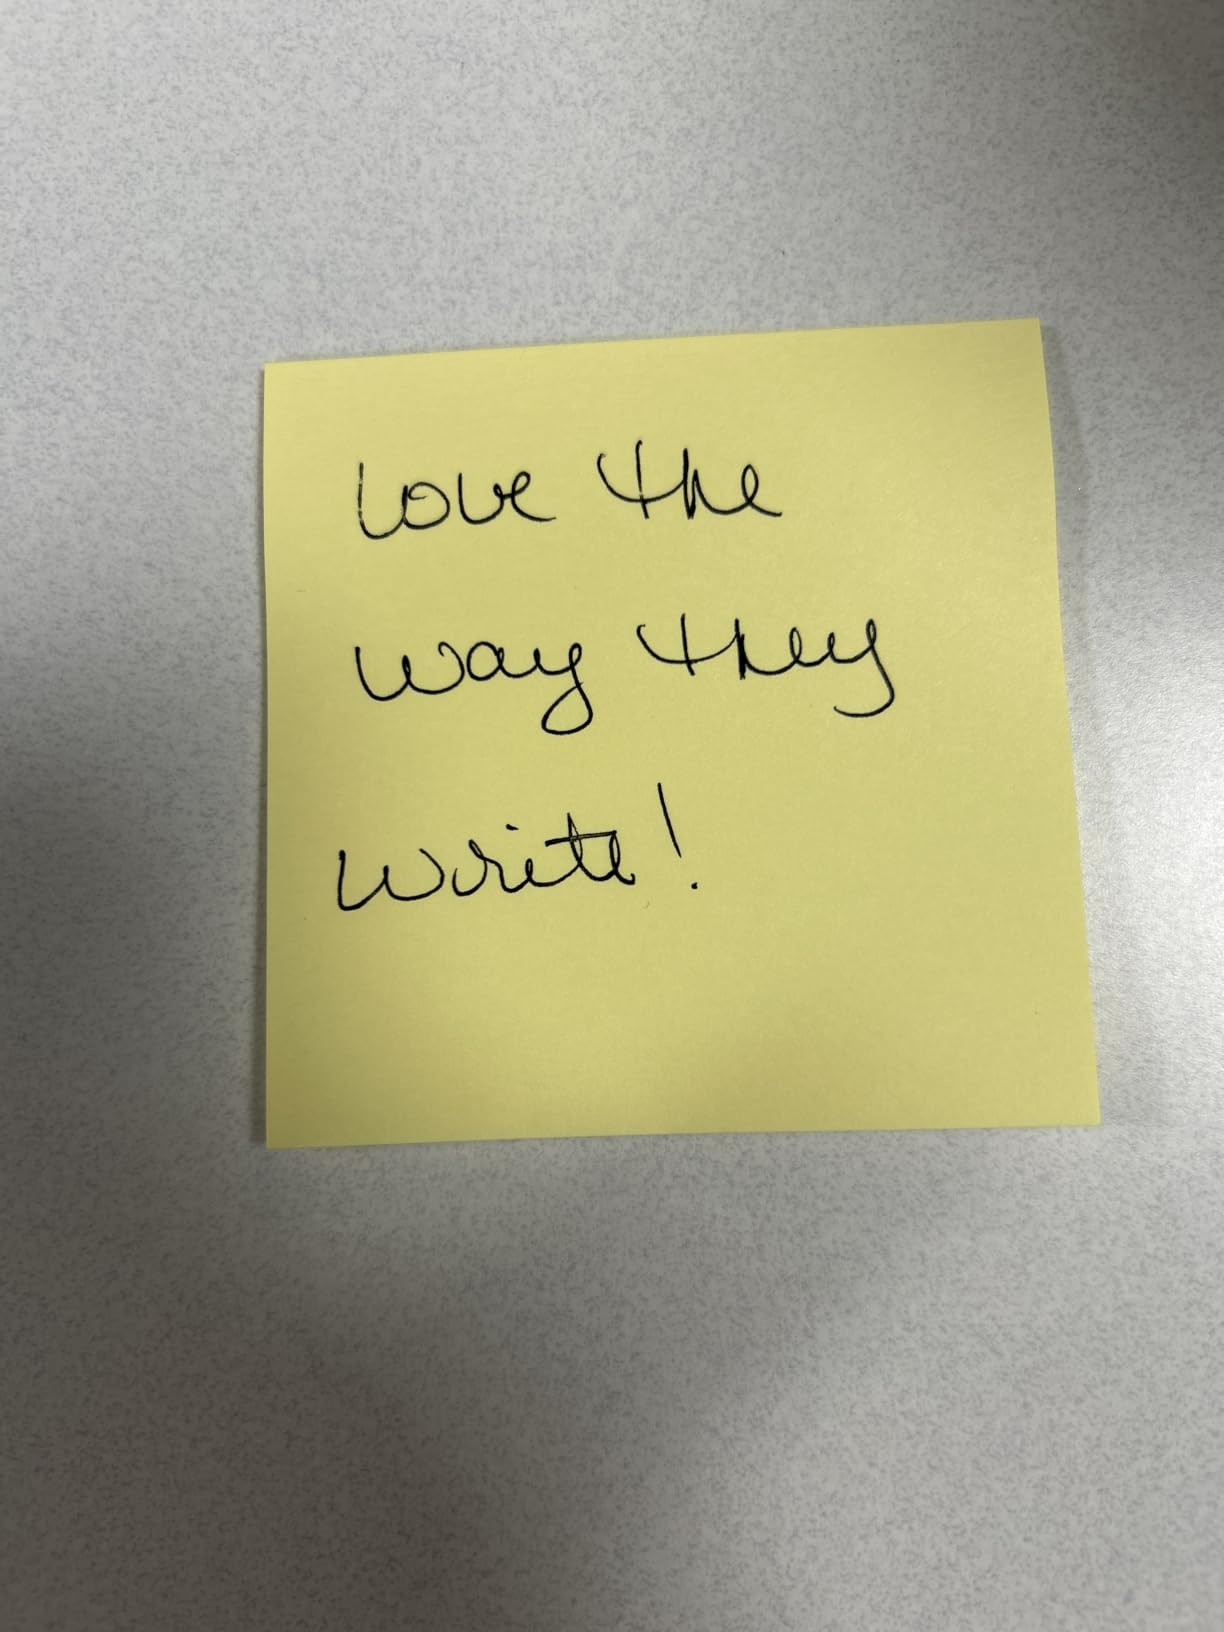 Love the
way they
write!